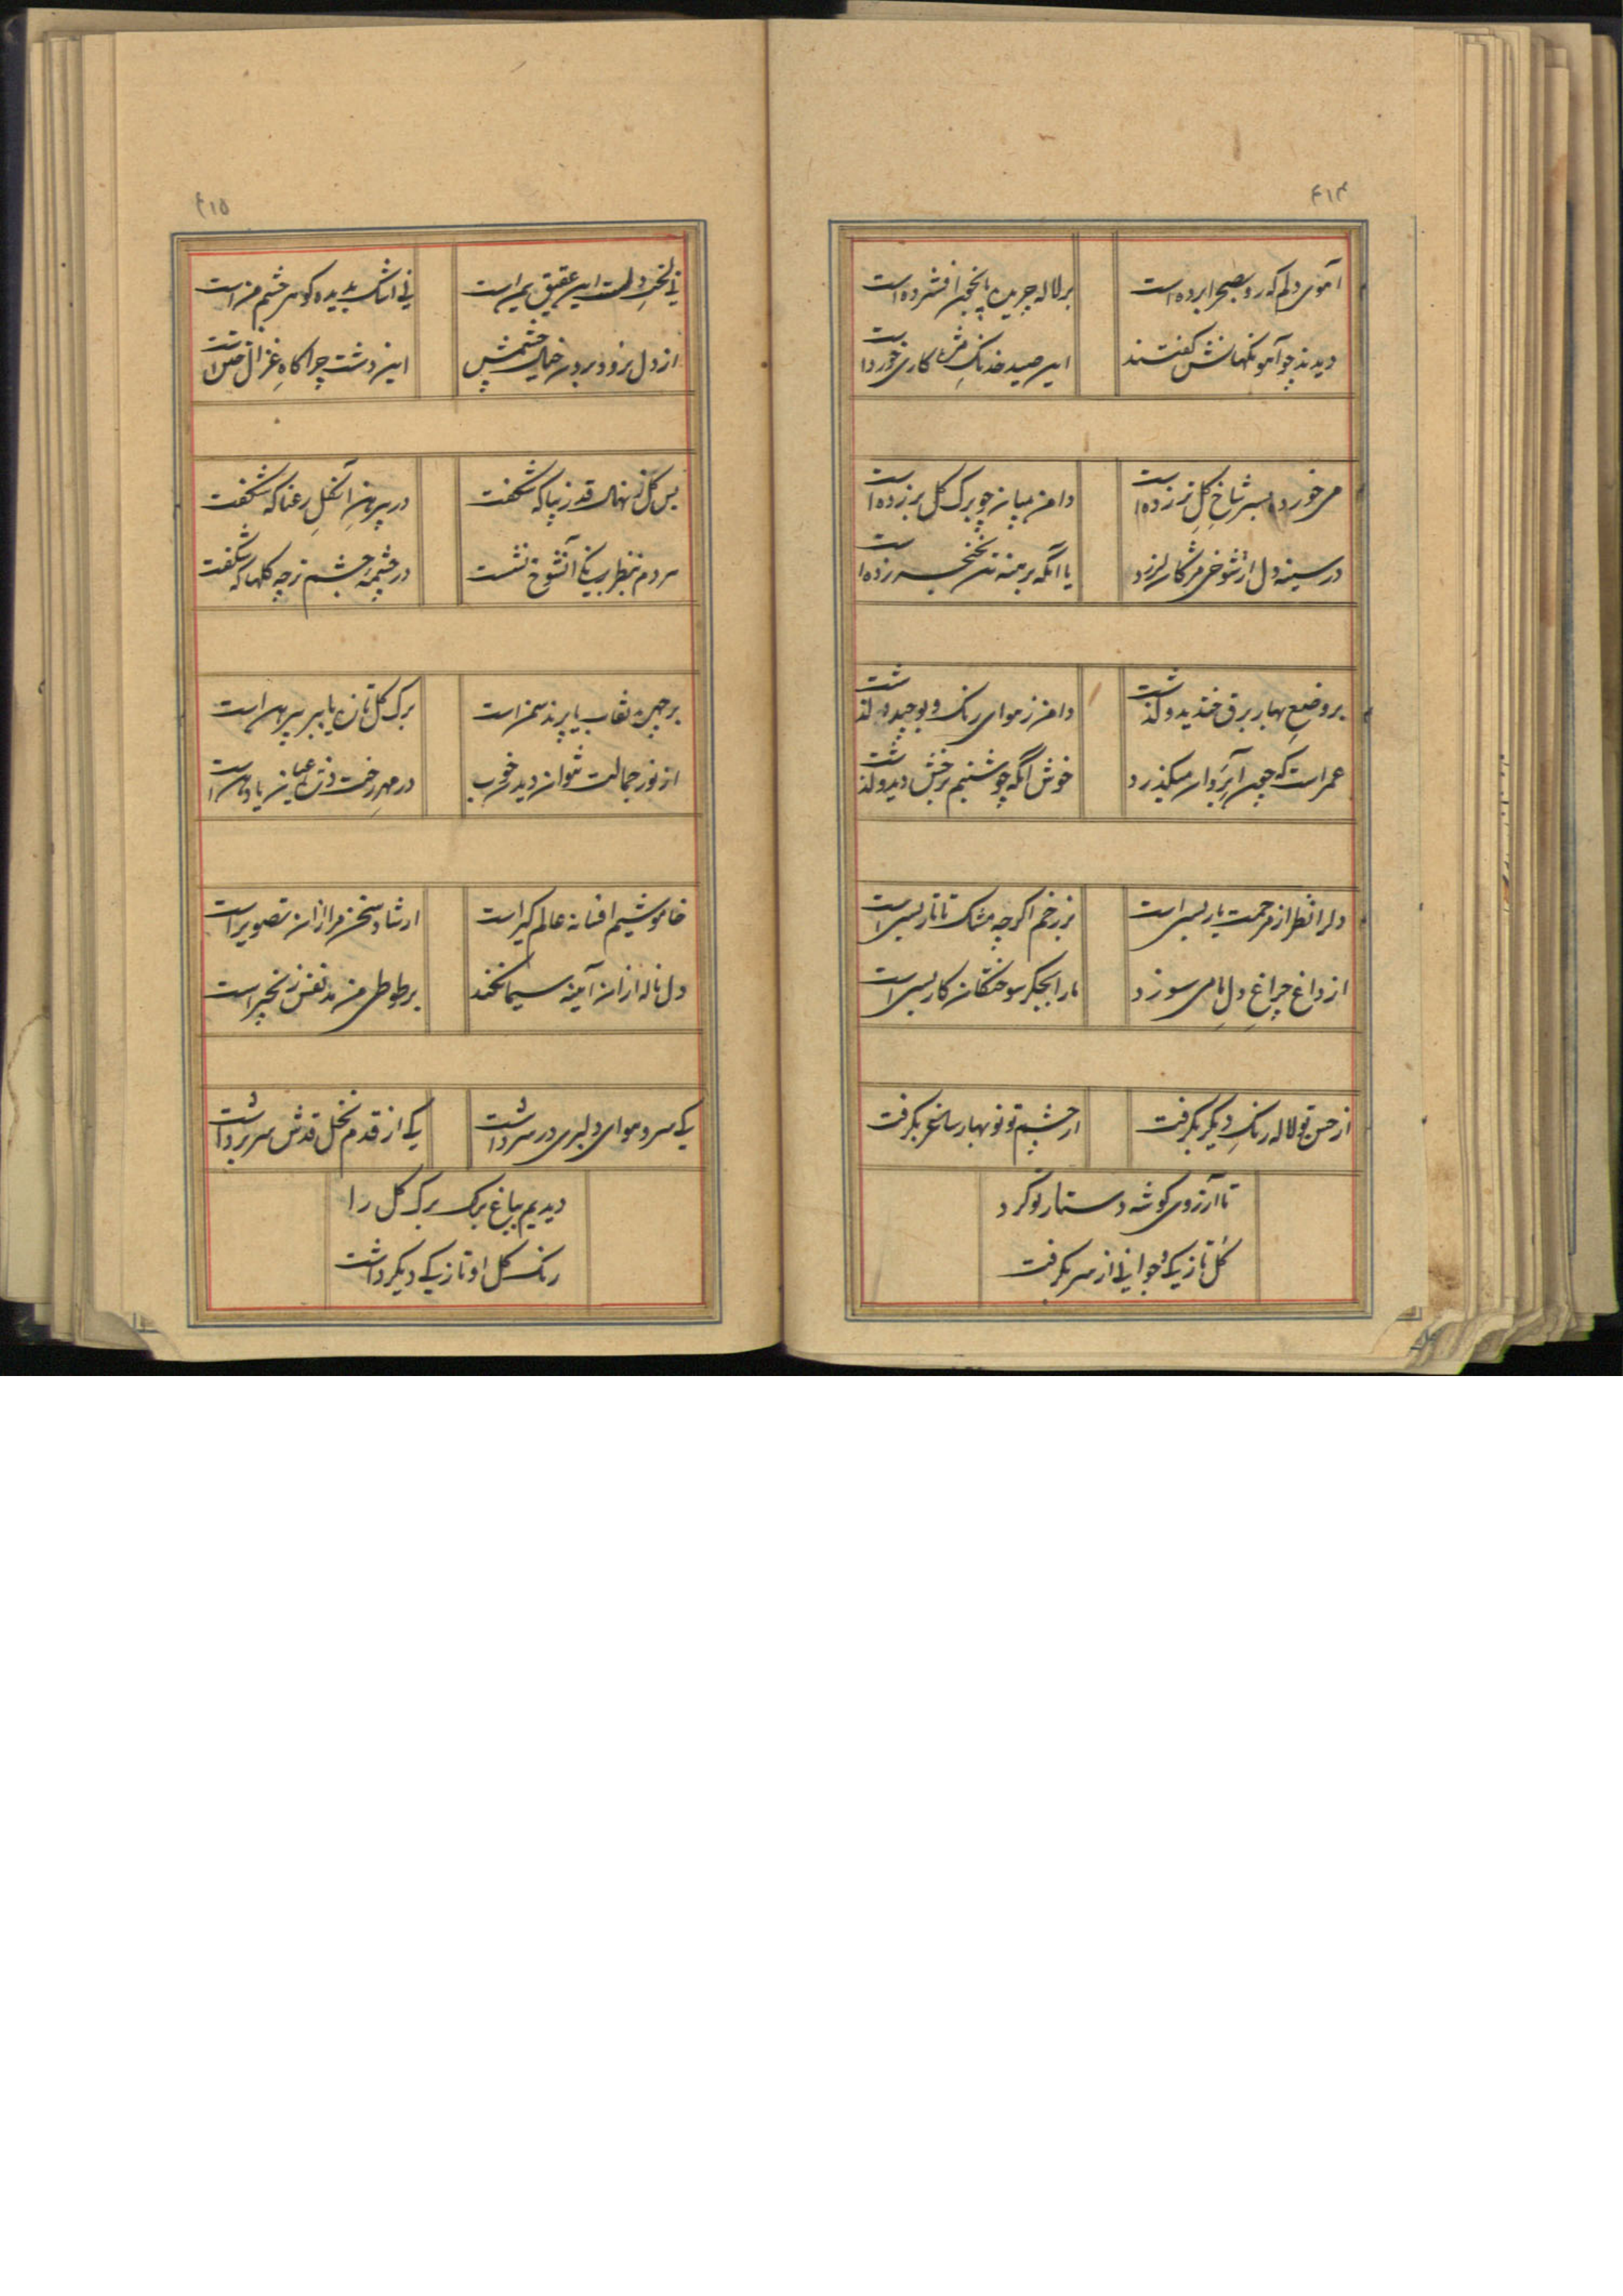 ۴۱۴
آهوی دلم که رو بصحرا برده است
بر لاله چریده پا بخون افشرده است
دیدند چو آهو نگهانش گفتند
این صید خدنگ کاری خورده است
دامن بمیان چو برک گل بر زده است
در سینه دل از شوخی مژگان لرزد
یا آنکه برهنه تن بخنجر زده است
بر وضع بهار برق خندید و گذشت
دامن ز هوای رنگ و بو چید و گذشت
عمر است که چون آب روان میگذرد
خوش آنکه چو شبنم برخش دید و گذشت
دلرا نظر از مرحمت یار بس است
بر زخم اگرچه مشک تاتار بس است
از داغ چراغ دل ما می سوزد
ما را بجگر سوختگان کار بس است
از حسن تو لاله رنگ دیگر بگرفت
از چشم تو نوبهار ساغر بگرفت
تا آرزوی گوشه دستار تو کرد
گل تازیکی و جوانی از سر بگرفت
۴۱۵
نی لخت دلست این عقیق یمن است
نی اشک بدیده گوهر چشم من است
از دل نرود برون خیال چشمش
این دشت چراگاه غزال ختن است
بس گل ز نهال قد زیبا که شگفت
در پیرهن آن گل رعنا که شگفت
مردم بنظر بسکه آن شوخ نشست
در چشمه چشم من چه گلها که شگفت
بر چهره نقاب یا پرند سمن است
برک گل تازه یا ببر پیرهن است
از نور جمالت نتوان دید خوب
در مهر رخت ذره عیان یا دهن است
خاموشیم افسانه عالم گیر است
ارشاد سخن مرا از آن تصویر است
دل ناله از آن آینه سیما نکند
بر طوطی من مد نفس زنجیر است
یکی سرو هوای دلبری در سر داشت
یکی از قدم نخل قدش سر برداشت
دیدیم بباغ برک برک گل را
رنگ گل او تازیکی دیگر داشت